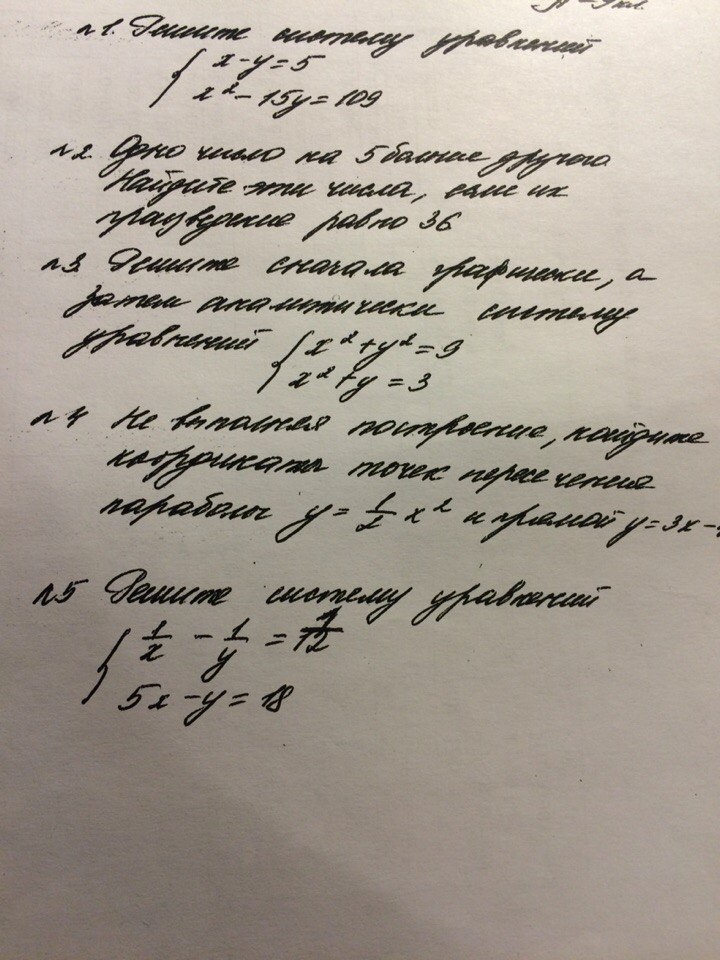 л1. Решите систему уравнений
{ x - y = 5
x² - 15y = 109
л2 Одно число на 5 больше другого
Найдите эти числа, если их
произведение равно 36
л3. Решите сначала графически, а
затем аналитически систему
уравнений { x² + y² = 9
x² + y = 3
л4 Не выполняя построение, найдите
координаты точек пересечения
параболы y = 1/2 x² и прямой y = 3x -
л5 Решите систему уравнений
{ 1/x - 1/y = 1/12
5x - y = 18